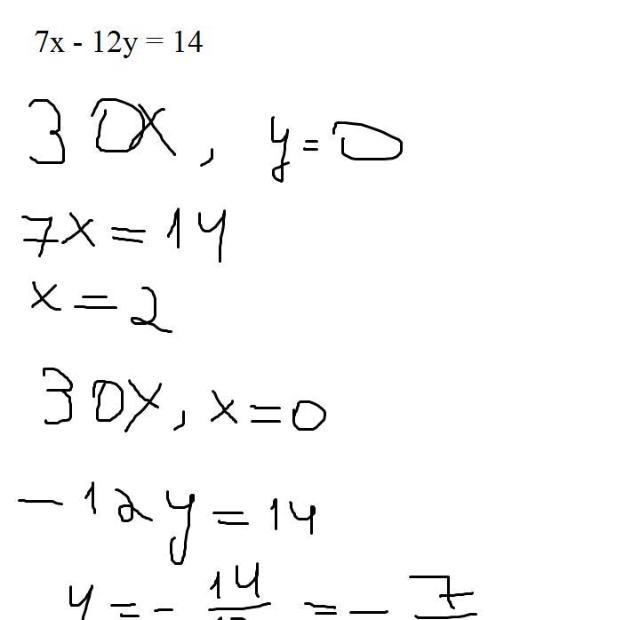 7x - 12y = 14
З OX, y = 0
7x = 14
x = 2
З OY, x = 0
-12y = 14
y = - 14 = - 7